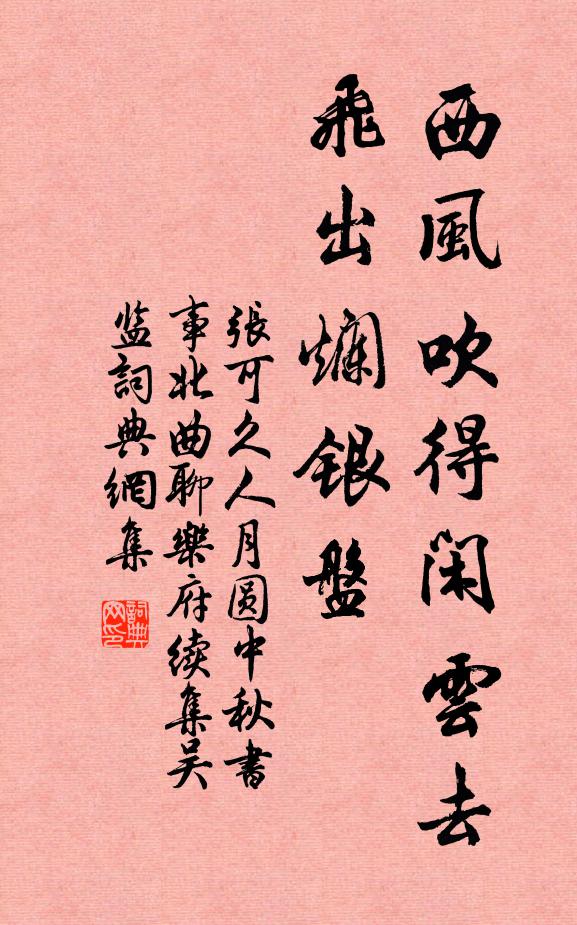 西風吹得閑雲去
飛出爛銀盤
張可久人月圆中秋書
事北曲聊樂府續集吴
监詞典網集
詞典
网印